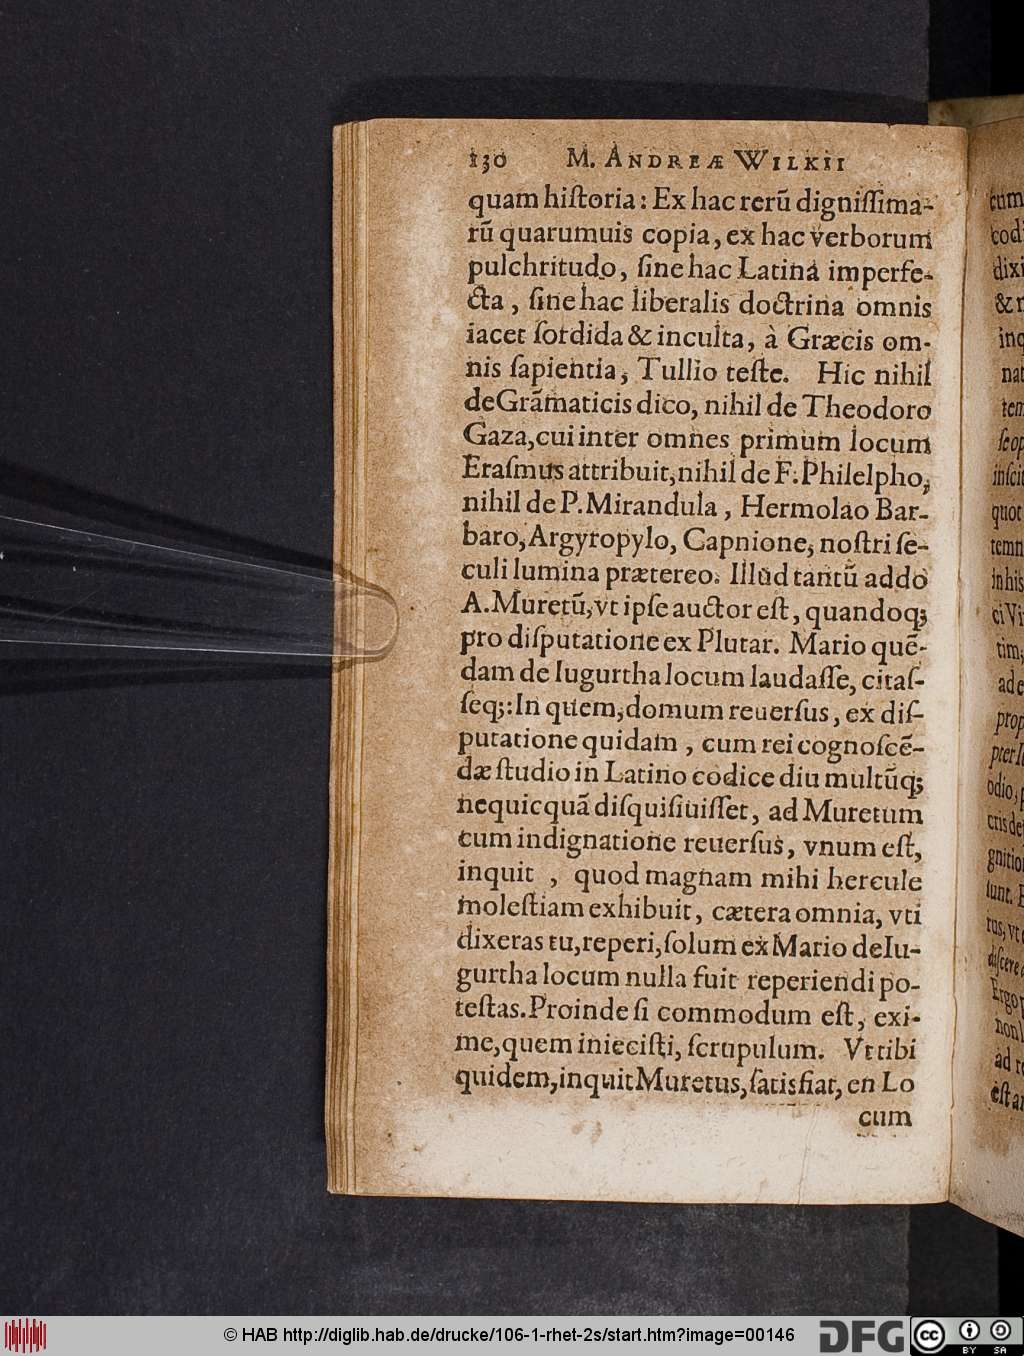 130 M. ANDREÆ WILKII
quam hiſtoria: Ex hac rerũ digniſſima-
rũ quarumuis copia, ex hac verborum
pulchritudo, ſine hac Latina imperfe-
cta, ſine hac liberalis doctrina omnis
iacet ſordida & inculta, à Græcis om-
nis ſapientia, Tullio teſte. Hic nihil
de Grãmaticis dico, nihil de Theodoro
Gaza, cui inter omnes primum locum
Eraſmus attribuit, nihil de F. Philelpho,
nihil de P. Mirandula, Hermolao Bar-
baro, Argyropylo, Capnione, noſtri ſe-
culi lumina prætereo. Illud tantũ addo
A. Muretũ, vt ipſe auctor eſt, quandoq;
pro diſputatione ex Plutar. Mario quẽ-
dam de Iugurtha locum laudaſſe, citaſ-
ſeq;: In quem, domum reuerſus, ex diſ-
putatione quidam, cum rei cognoſcẽ-
dæ ſtudio in Latino codice diu multũq;
nequicquã diſquiſiuiſſet, ad Muretum
cum indignatione reuerſus, vnum eſt,
inquit, quod magnam mihi hercule
moleſtiam exhibuit, cætera omnia, vti
dixeras tu, reperi, ſolum ex Mario de Iu-
gurtha locum nulla fuit reperiendi po-
teſtas. Proinde ſi commodum eſt, exi-
me, quem inieciſti, ſcrupulum. Vt tibi
quidem, inquit Muretus, ſatis fiat, en Lo
cum
cum
dixi
inq
nat
tem
ſe op
inſcit
quot
temn
in his
ci Vi
tim;
ad e
prop
odio, p
cris de
gnitio
ſunt. E
rus, vt
diſcere
Ergo
non
ad re
eſt a
© HAB http://diglib.hab.de/drucke/106-1-rhet-2s/start.htm?image=00146
DFG
cc
BY SA